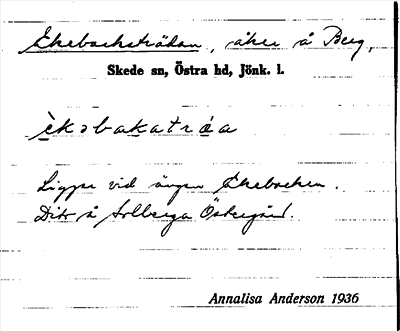 Ekebacksträdan, åker å Berg,
Skede sn, Östra hd, Jönk. l.
èkɔbakatrǻa
Ligger vid ängen Ekebacken.
Dito å Solberga Östergård.
Annalisa Anderson 1936